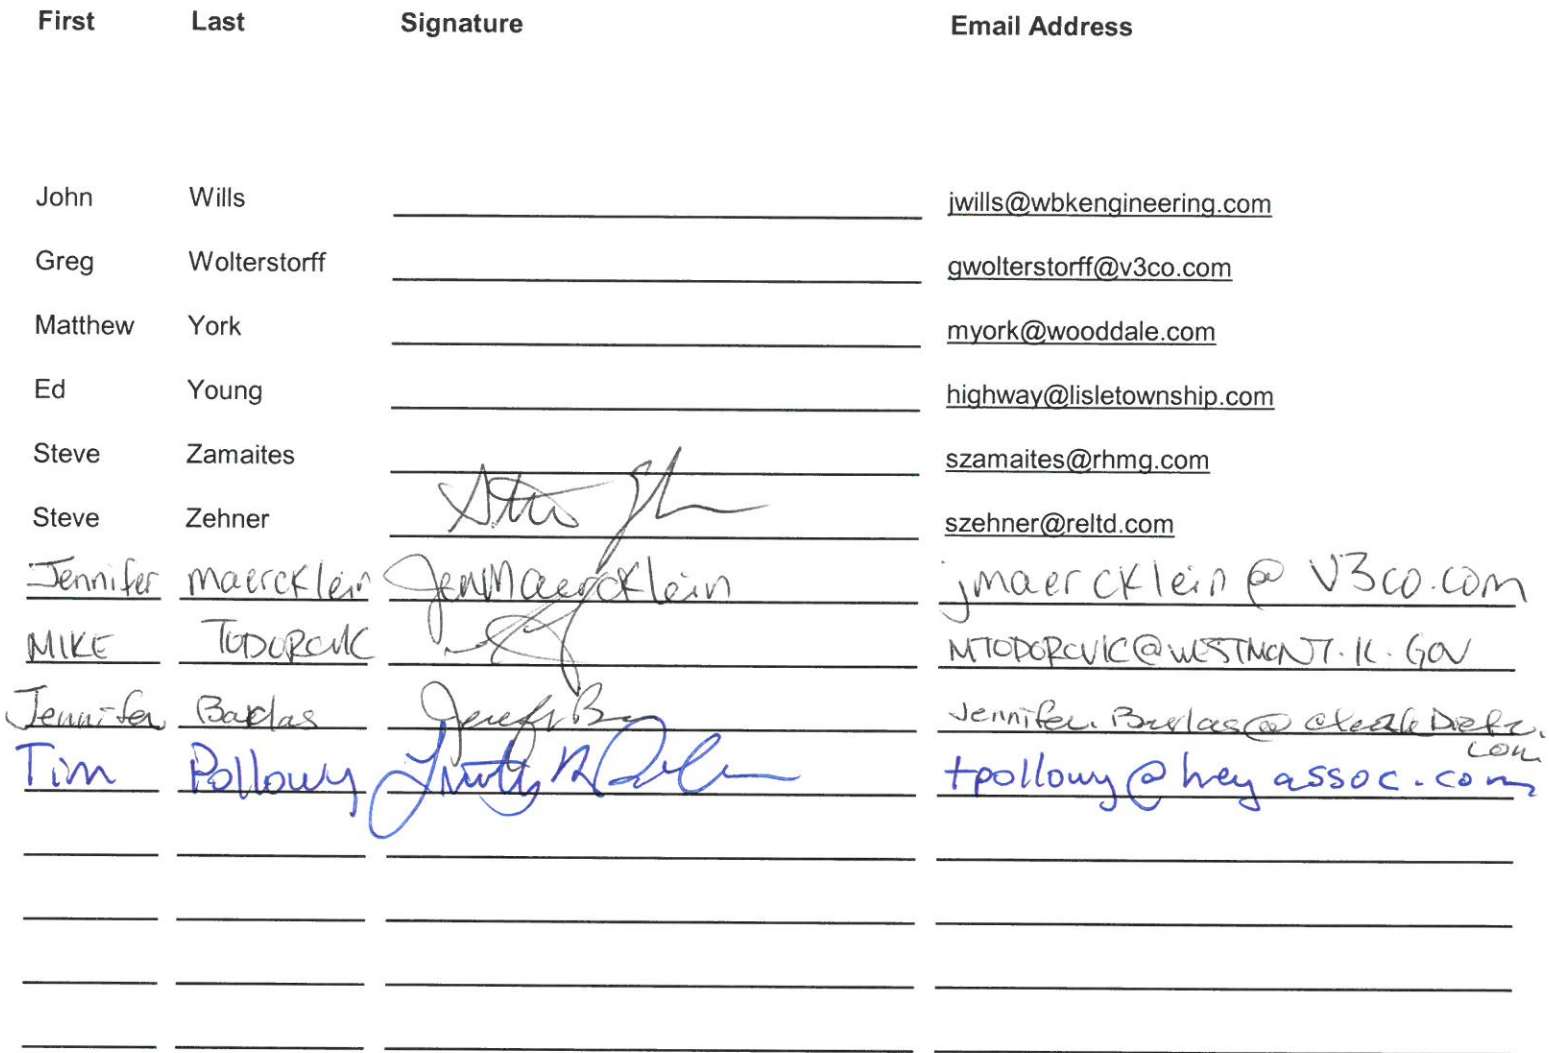 First Last Signature Email Address
John Wills jwills@wbkengineering.com
Greg Wolterstorff gwolterstorff@v3co.com
Matthew York myork@wooddale.com
Ed Young highway@lisletownship.com
Steve Zamaites szamaites@rhmg.com
Steve Zehner szehner@reltd.com
Jennifer Maercklein Jen Maercklein jmaercklein@v3co.com
MIKE TODOROVIC MTODOROVIC@WESTMONT.IL.GOV
Jennifer
Tim Pollowy tpollowy@heyassoc.com